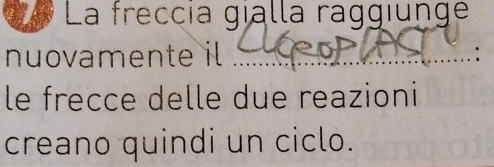 7 La freccia gialla raggiunge
nuovamente il CLOROPLASTO.
le frecce delle due reazioni
creano quindi un ciclo.